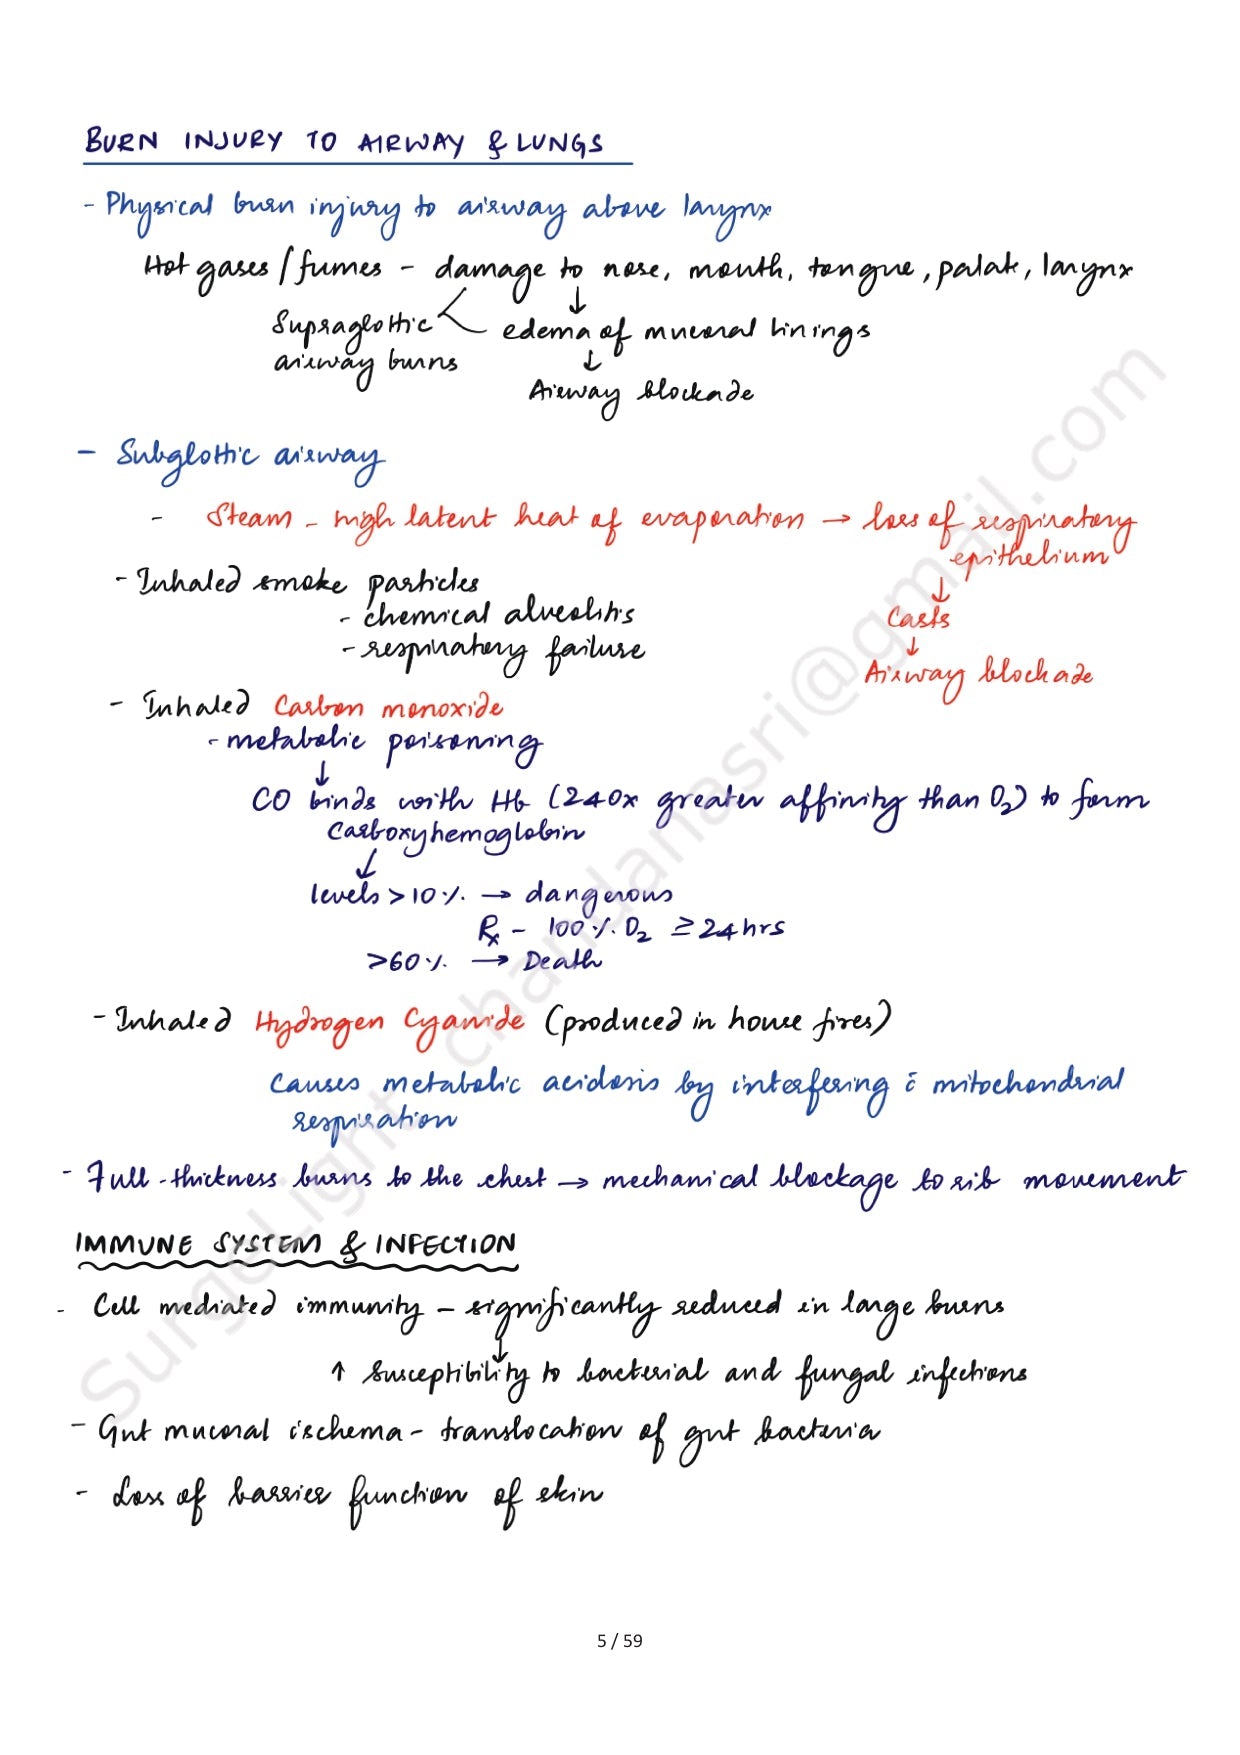 BURN INJURY TO AIRWAY & LUNGS
- Physical burn injury to airway above larynx
Hot gases / fumes - damage to nose, mouth, tongue, palate, larynx
↓
Supraglottic
airway burns
edema of mucosal linings
↓
Airway blockade
- Subglottic airway
- Steam - high latent heat of evaporation → loss of respiratory
epithelium
↓
Casts
↓
Airway blockade
- Inhaled smoke particles
- chemical alveolitis
- respiratory failure
- Inhaled Carbon monoxide
- metabolic poisoning
↓
CO binds with Hb (240x greater affinity than O2) to form
Carboxyhemoglobin
↓
levels > 10%. → dangerous
Rx - 100%. O2 ≥ 24 hrs
>60%. → Death
- Inhaled Hydrogen Cyanide (produced in house fires)
Causes metabolic acidosis by interfering c̄ mitochondrial
respiration
- Full-thickness burns to the chest → mechanical blockage to rib movement
IMMUNE SYSTEM & INFECTION
- Cell mediated immunity - significantly reduced in large burns
↓
↑ Susceptibility to bacterial and fungal infections
- Gut mucosal ischema - translocation of gut bacteria
- Loss of barrier function of skin
5 / 59
SurgeLight chandanasri@gmail.com